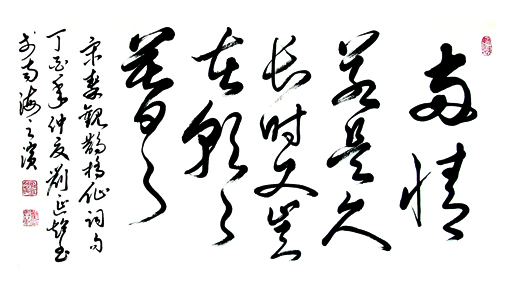 两情
若是久
长时又岂
在朝々
暮々
宋秦观鹊桥仙词句
丁亥年仲夏刘正
书于南海之滨